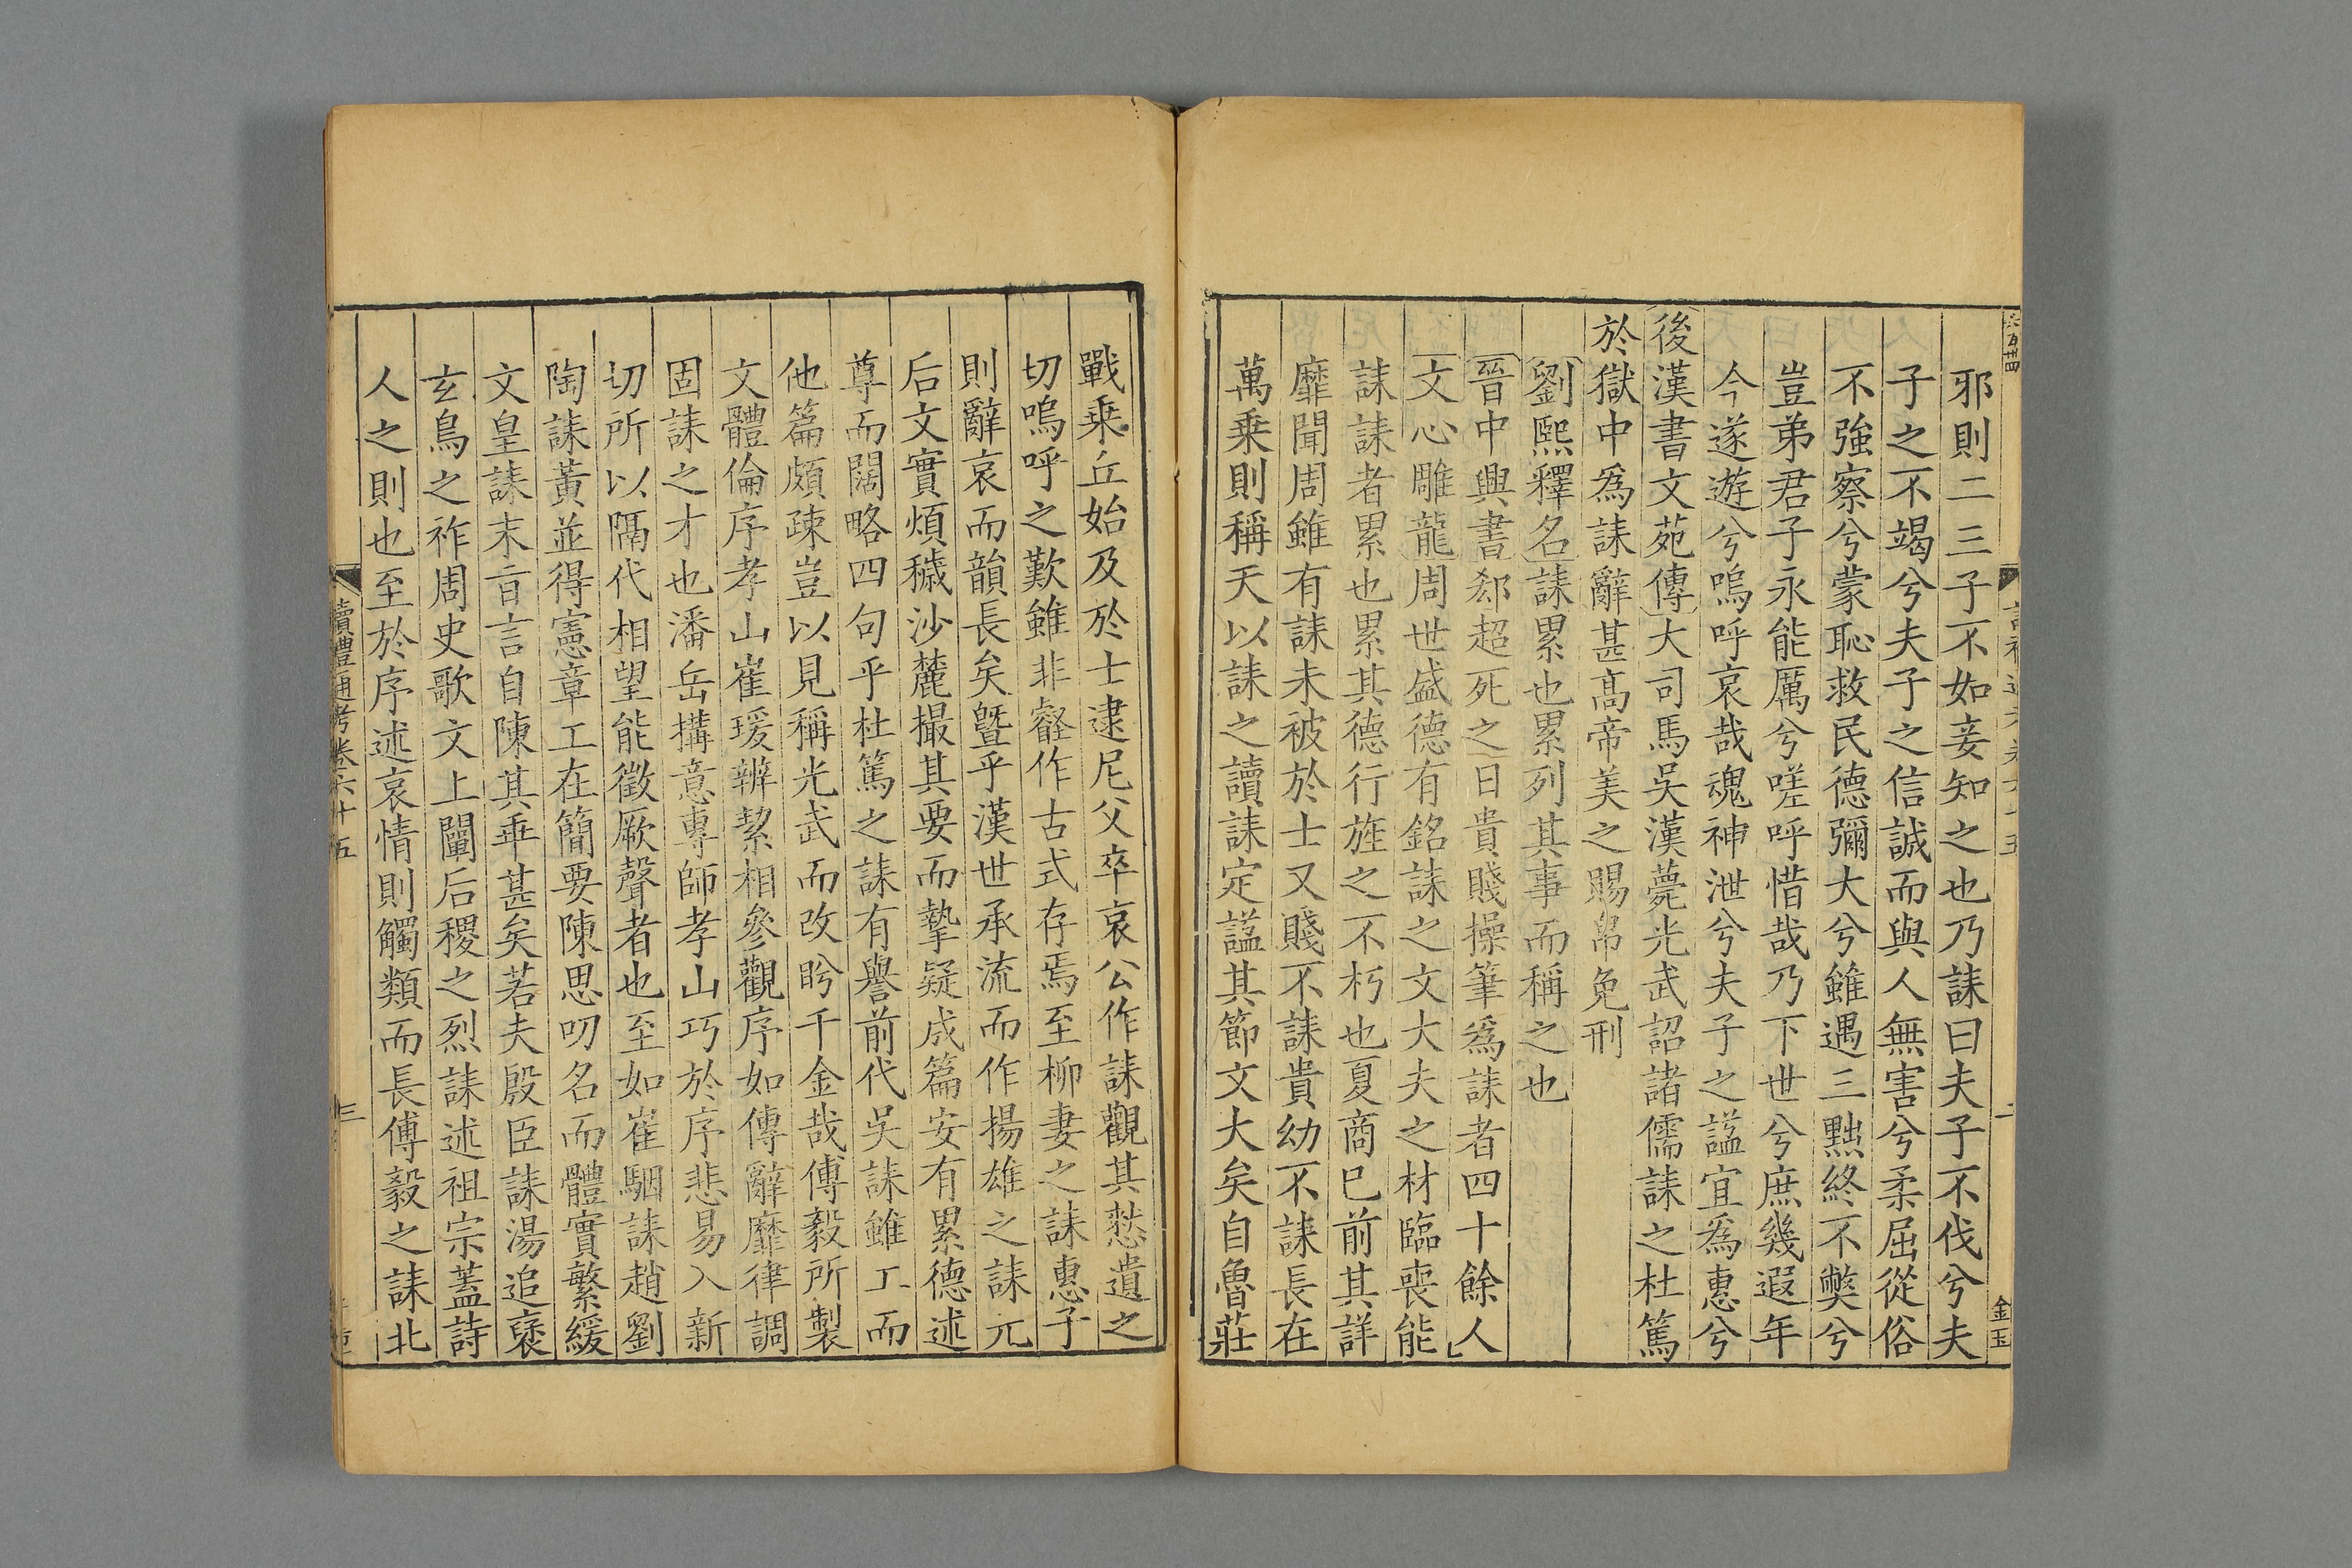 邪則二三子不如妾知之也乃誄曰夫子不伐兮夫
子之不竭兮夫子之信誠而與人無害兮柔屈從俗
不強察兮蒙恥救民德彌大兮雖遇三黜終不獘兮
豈弟君子永能厲兮嗟呼惜哉乃下世兮庶幾遐年
今遂遊兮嗚呼哀哉魂神泄兮夫子之諡宜爲惠兮
後漢書文苑傳大司馬吳漢薨光武詔諸儒誄之杜篤
於獄中爲誄辭甚高帝美之賜帛免刑
劉熙釋名誄累也累列其事而稱之也
晉中興書郄超死之日貴賤操筆爲誄者四十餘人
文心雕龍周世盛德有銘誄之文大夫之材臨喪能
誄誄者累也累其德行旌之不朽也夏商巳前其詳
靡聞周雖有誄未被於士又賤不誄貴幼不誄長在
萬乗則稱天以誄之讀誄定諡其節文大矣自魯莊
戰乗丘始及於士逮尼父卒哀公作誄觀其慭遺之
切嗚呼之歎雖非叡作古式存焉至柳妻之誄惠子
則辭哀而韻長矣曁乎漢世承流而作揚雄之誄元
后文實煩穢沙麓撮其要而摯疑成篇安有累德述
尊而闊略四句乎杜篤之誄有譽前代吳誄雖工而
他篇頗疎豈以見稱光武而改盻千金哉傅毅所製
文體倫序孝山崔瑗辨絜相參觀序如傳辭靡律調
固誄之才也潘岳搆意專師孝山巧於序悲易入新
切所以隔代相望能徵厥聲者也至如崔駰誄趙劉
陶誄黃並得憲章工在簡要陳思叨名而體實繁緩
文皇誄末旨言自陳其乖甚矣若夫殷臣誄湯追褒
玄鳥之祚周史歌文上闡后稷之烈誄述祖宗蓋詩
人之則也至於序述哀情則觸類而長傅毅之誄北
讀禮通考卷六十五
三
二
金玉